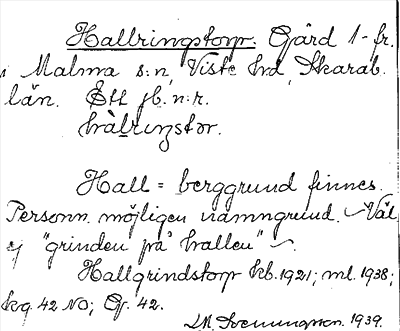 Hallringstorp. Gård 1-fr.
i Malma s:n, Viste hrd, Skarab.
län. Ett jb. n:r.
hàlrıŋstor.
Hall = berggrund finnes.
Personn. möjligen namngrund. Väl
ej "grinden på hallen".
Hallgrindstorp kb. 1921; ml. 1938;
kg. 42 NO; Gs. 42.
Svenungsson. 1939.